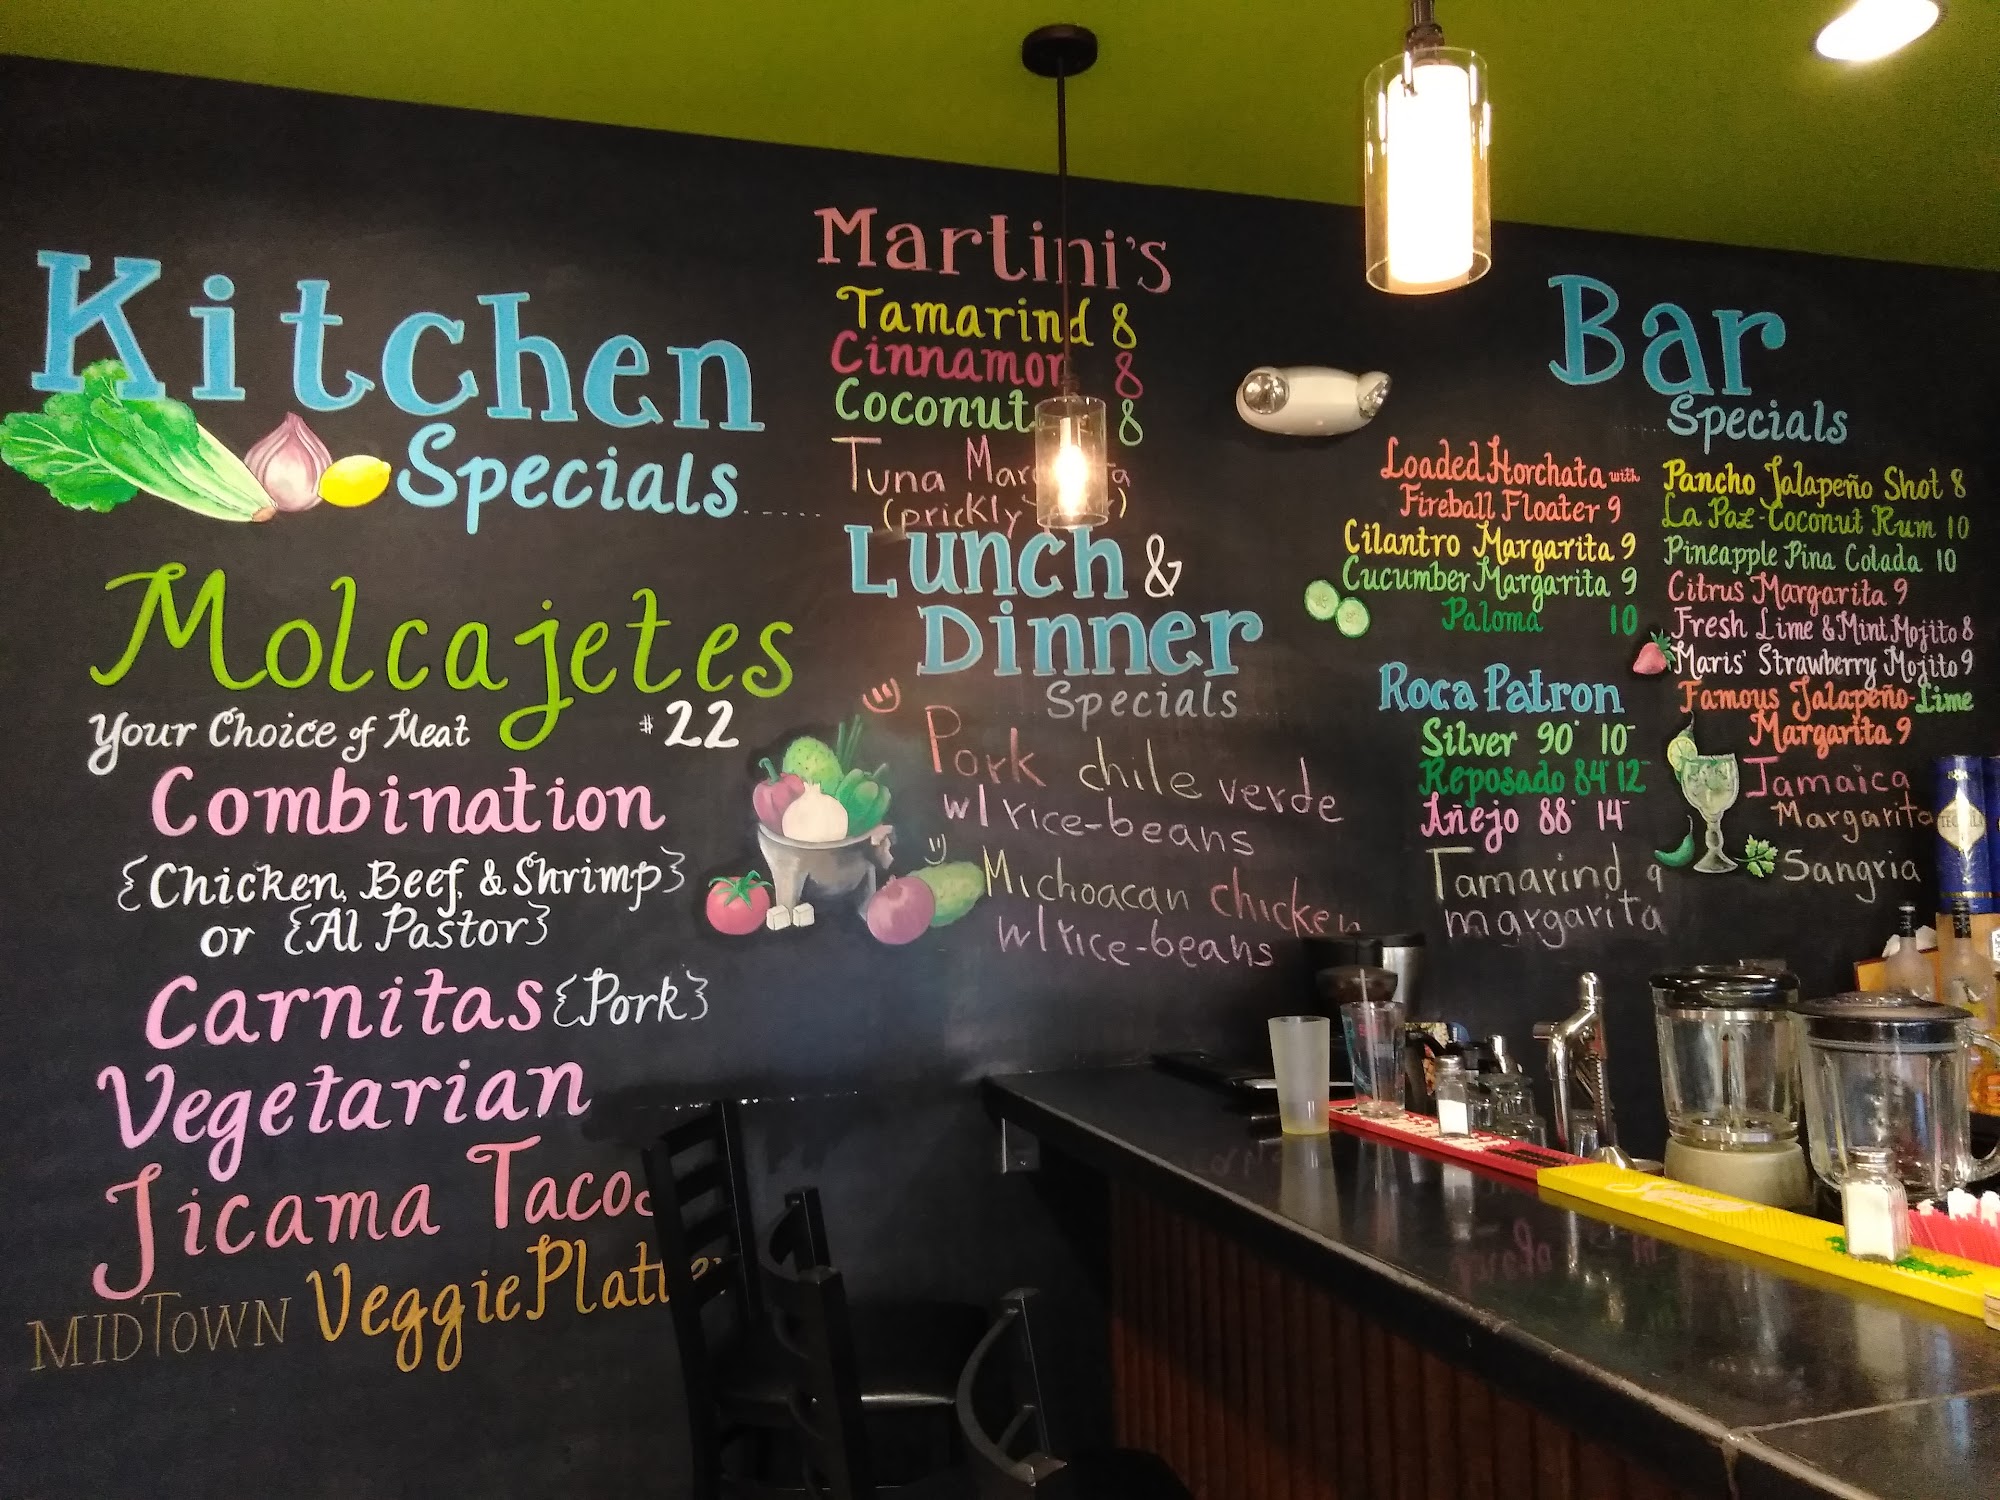 Kitchen
Specials
Molcajetes
Your Choice of Meat #22
Combination
{Chicken, Beef, & Shrimp}
or {Al Pastor}
Carnitas {Pork}
Vegetarian
Jicama Tacos
MIDTOWN Veggie Platter
Martini's
Tamarind 8
Cinnamon 8
Coconut 8
Tuna
(prickly
Lunch &
Dinner
Specials
Pork chile verde
w/rice-beans
Michoacan chicken
w/rice-beans
Bar
Specials
Loaded Horchata with
Fireball Floater 9
Cilantro Margarita 9
Cucumber Margarita 9
Paloma 10
Roca Patron
Silver 90° 10-
Reposado 84° 12-
Añejo 88° 14-
Tamarind 9
margarita
Pancho Jalapeño Shot 8
La Paz-Coconut Rum 10
Pineapple Pina Colada 10
Citrus Margarita 9
Fresh Lime & Mint Mojito 8
Maris' Strawberry Mojito 9
Famous Jalapeño-Lime
Margarita 9
Jamaica
Margarita
Sangria